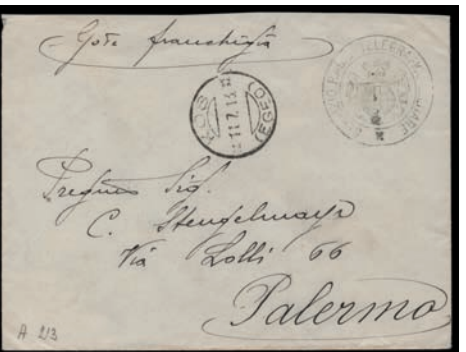 Gode franchigia
KOS
11.7.13
(EGEO)
Pregmo Sig.
C. Stengelmayr
Via Lolli 66
Palermo
A 213